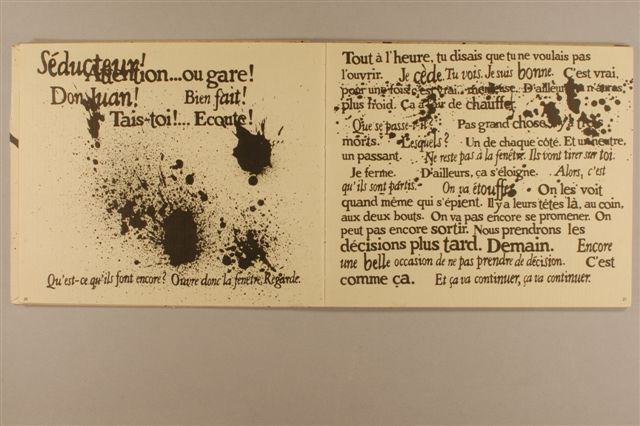 Séducteur!
Attention...ou gare!
Don Juan! Bien fait!
Tais-toi!... Ecoute!
Qu'est-ce qu'ils font encore? Ouvre donc la fenêtre. Regarde.
Tout à l'heure, tu disais que tu ne voulais pas
l'ouvrir. Je cède. Tu vois. Je suis bonne. C'est vrai,
pour une fois c'est vrai... menteuse. D'ailleurs tu n'auras
plus froid. Ça a l'air de chauffer.
Que se passe-t-il? Pas grand chose. Y a trois
morts. Lesquels? Un de chaque côté. Et un neutre,
un passant. Ne reste pas à la fenêtre. Ils vont tirer sur toi.
Je ferme. D'ailleurs, ça s'éloigne. Alors, c'est
qu'ils sont partis. On ça étouffe. On les voit
quand même qui s'épient. Il y a leurs têtes là, au coin,
aux deux bouts. On va pas encore se promener. On
peut pas encore sortir. Nous prendrons les
décisions plus tard. Demain. Encore
une belle occasion de ne pas prendre de décision. C'est
comme ça. Et ça va continuer, ça va continuer.